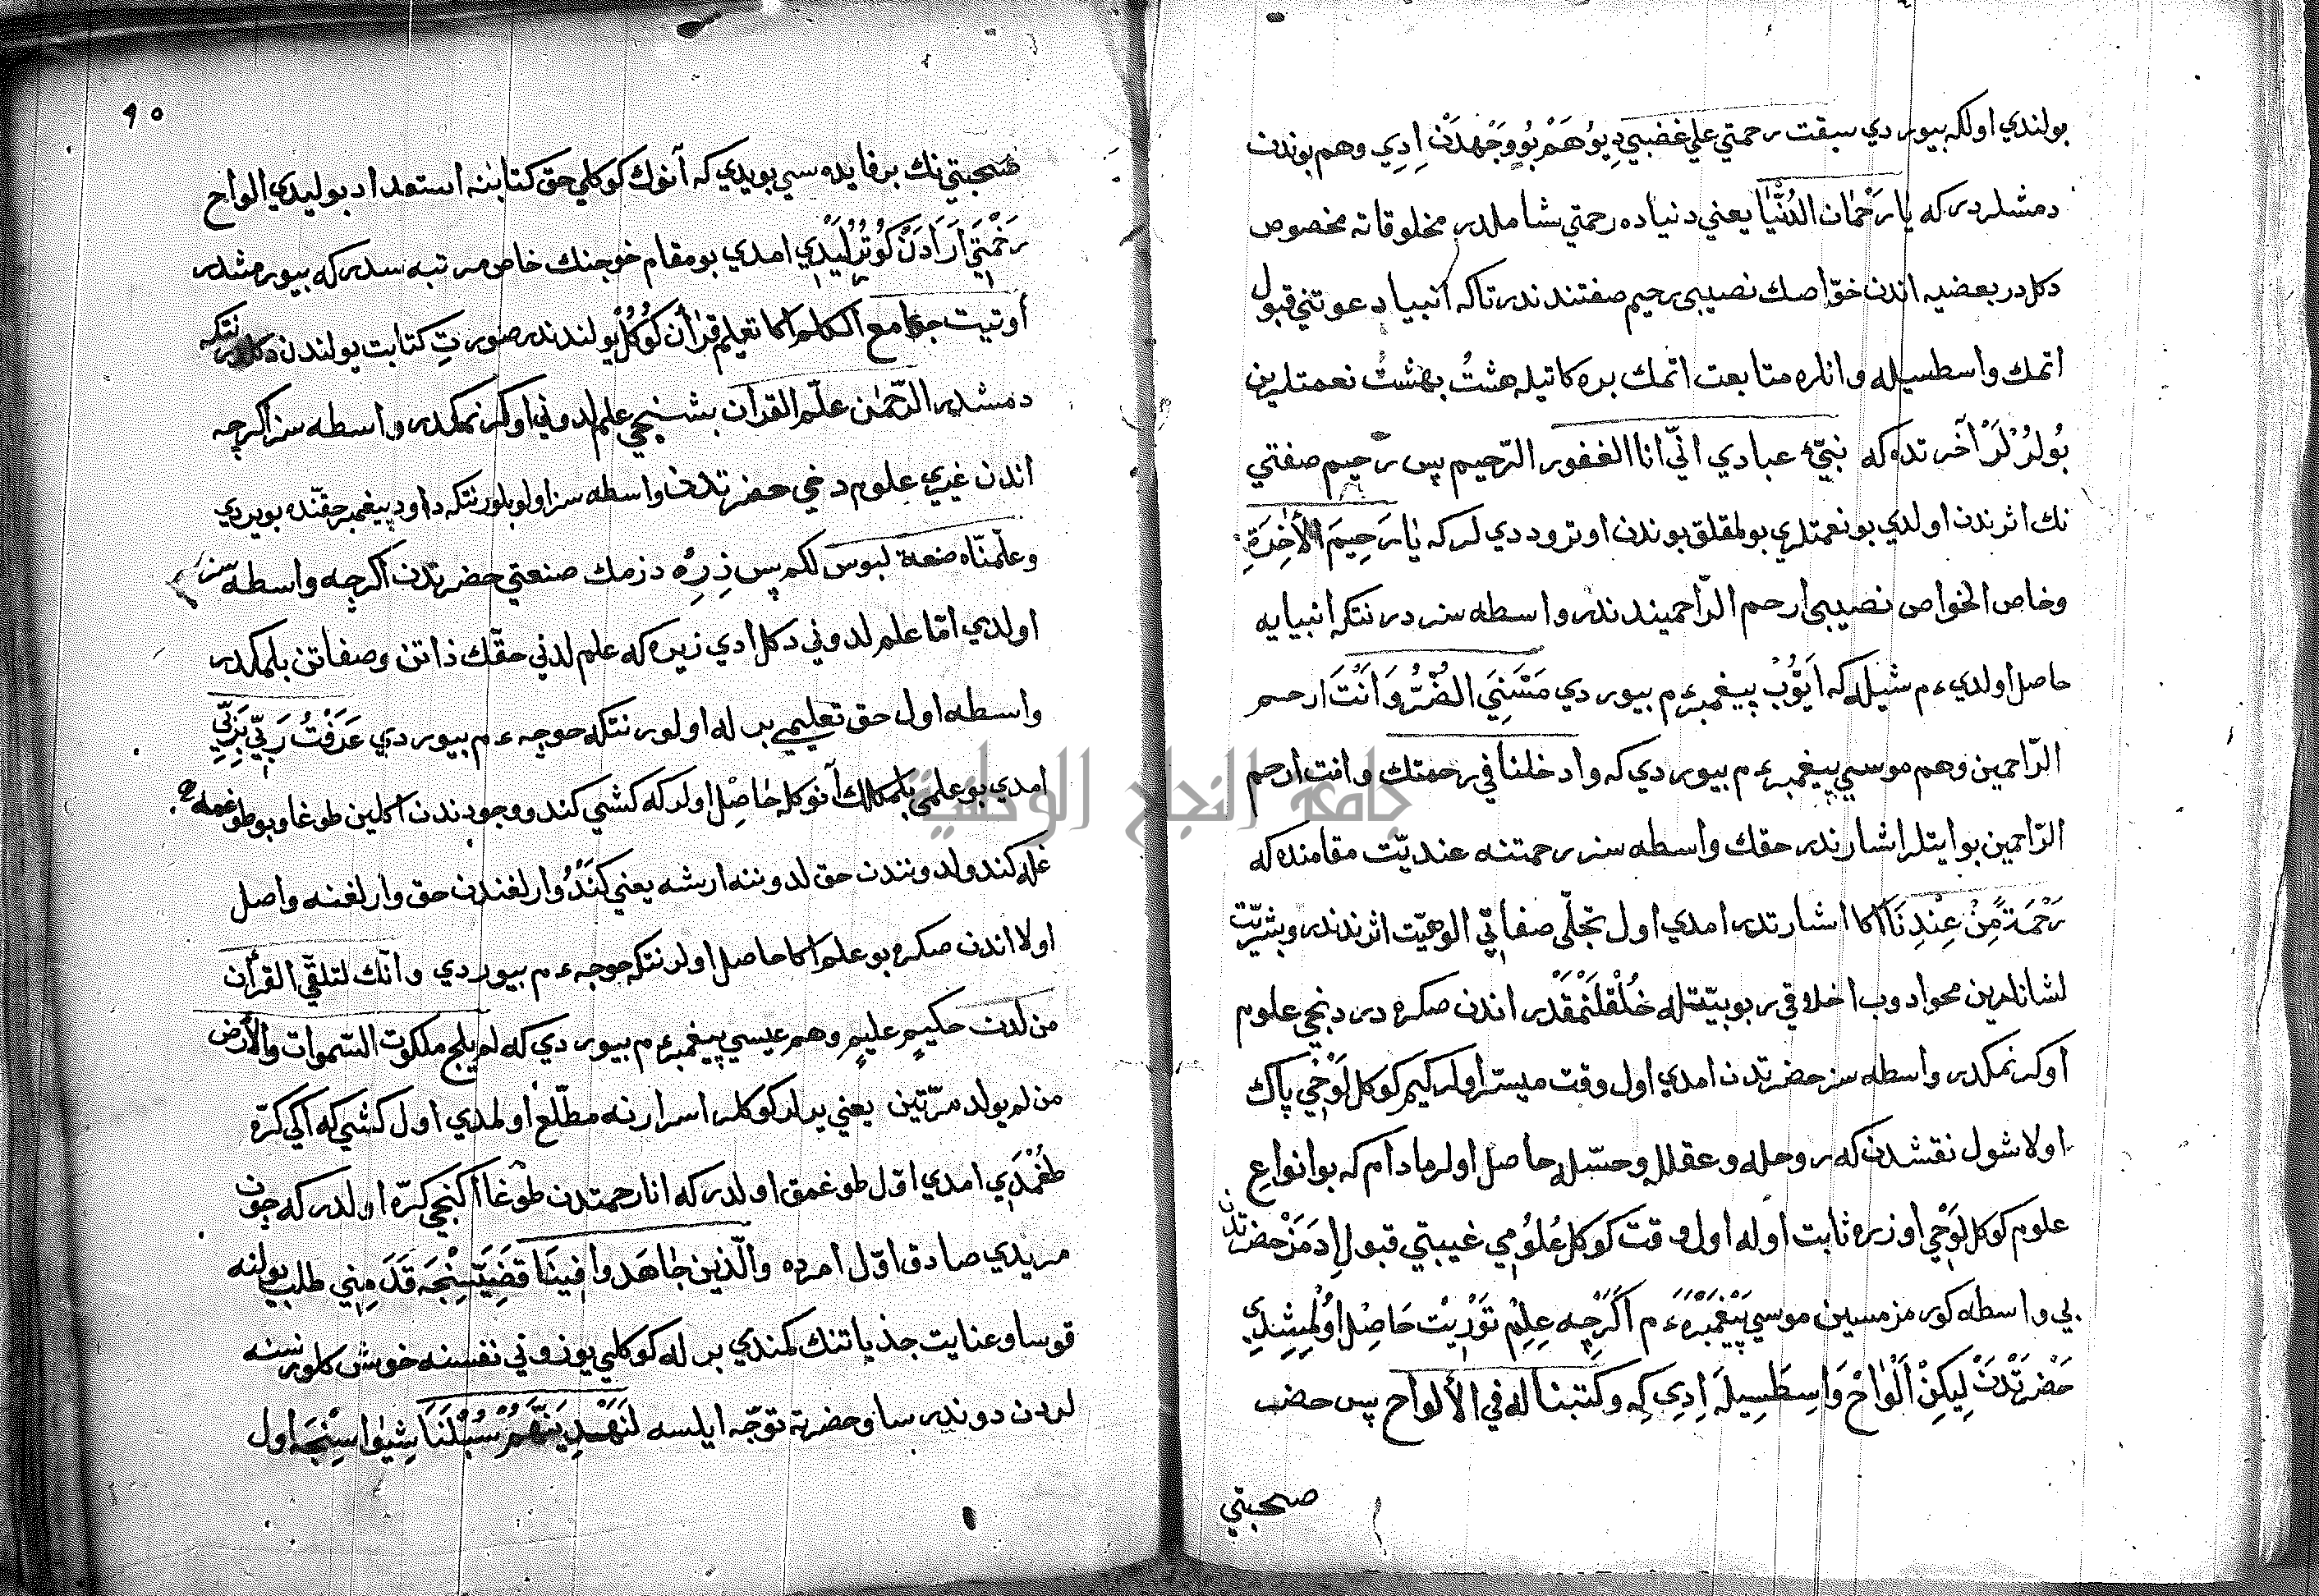 بولندي اولكه بيوردي سبقت رحمتي علي غضبي ديو هم بو وجهدن ادي وهم بوندن
دمشلردر كه يا رحمان الدنيا يعني دنياده رحمتي شاملدر مخلوقاته مخصوص
دكلدر بعضيه اندن خواصك نصيبي رحيم صفتندندر تا كه انبيا دعوتني قبول
اتمك واسطسيله وانلره متابعت اتمك بركاتيله هشت بهشت نعمتلرين
بولرلر آخرتده كه نبئ عبادي اني انا الغفور الرحيم پس رحيم صفتي
نك اثرندن اولدي بو نعمتلري بولمقلق بوندن اوترو ديديلر كه يا رحيم الاخرة
وخاص الخواص نصيبي ارحم الراحميندندر واسطه سزدر نتكه انبيايه
حاصل اولدي ءم شيله كه ايوب پيغمبر ءم بيوردي مسني الضر وانت ارحم
الراحمين وهم موسي پيغمبر ءم بيوردي كه وادخلنا في رحمتك وانت ارحم
الراحمين بو ايتلر اشارتدر حقك واسطه سز رحمتنه عنديت مقامنده كه
رحمة من عندنا اكا اشارتدر امدي اول تجلي صفاتي الوهيت اثرندندر وبشريت
لشانلرين محو ادوب اخلاقي ربوبيتله خلقلنمقدر اندن صكره در دنجي علوم
اوكرنمكدر واسطه سز حضرتدن امدي اول وقت ميسر اولر كيم كوكل لوحي پاك
اولا شول نقشدن كه روحله وعقلله وحسله حاصل اولر مادام كه بو انواع
علوم كوكل لوحي اوزره ثابت اوله اول وقت كوكل علومي غيبتي قبول ادمز حضرتدن
بي واسطه كورمزمسين موسي پيغمبره ءم اكرچه علم توريت حاصل اولمشدي
حضرتدن ليكن الواح واسطسيله ادي كه وكتبنا له في الالواح پس حضرت
صحبتي
٩٥
صحبتي نك بر فايده سي بويدي كه آنوك كوكلي حق كتابنه استعداد بوليدي الواح
زحمتي ارادن كوترليدي امدي بو مقام خوجنك خاص مرتبه سدر كه بيورمشدر
اوتيت جوامع الكلم اكا تعليم قرآن كوكل يولندندر صورت كتابت يولندن دكلدر نتكه
دمشدر الرحمن علم القرآن بشنجي علم لدوني اوكرنمكدر واسطه سز اكرچه
اندن غيري علوم دخي حضرتدن واسطه سز اولو بلور نتكه داود پيغمبر حقنده بويردي
وعلمناه صنعة لبوس لكم پس زره دزمك صنعتي حضرتدن اكرچه واسطه سز
اولدي اما علم لدوني دكل ادي زيره كه علم لدني حقك ذاتن وصفاتن بلمكدر
واسطه اول حق تعليمي برله اولور نتكه حوجه ءم بيوردي عرفت ربي بربي
امدي بو علمي بلمكلك آنوكله حاصل اولر كه كشي كندو وجودندن اكلين طوغا وبو طوغمله
كندو لدونندن حق لدوننه ارشه يعني كندو وارلغندن حق وارلغنه واصل
اولا اندن صكره بو علم اكا حاصل اولر نتكه حوجه ءم بيوردي وانك لتلقي القرآن
من لدن حكيم عليم وهم عيسي پيغمبر ءم بيوردي كه لم يلج ملكوت السموات والارض
من لم يولد مرتين يعني يرلر كوكلر اسرارنه مطلع اولمدي اول كشي كه اكي كرة
طغمدي امدي اول طوغمق اولدر كه انا رحمتدن طوغا اكنجي كرة اولدر كه چون
مريدي صادق اول امرده والذين جاهدوا فينا قضيتسنجه قدمني طلب يولنه
قوسا وعنايت جذباتنك كمندي برله كوكلي يوزوني نفسنه خوش كلور نسنه
لردن دوندرسا وحضرته توجه ايلسه لنهدينهم سبلنا شيواسنجه اول
جامعة النجاح الوطنية